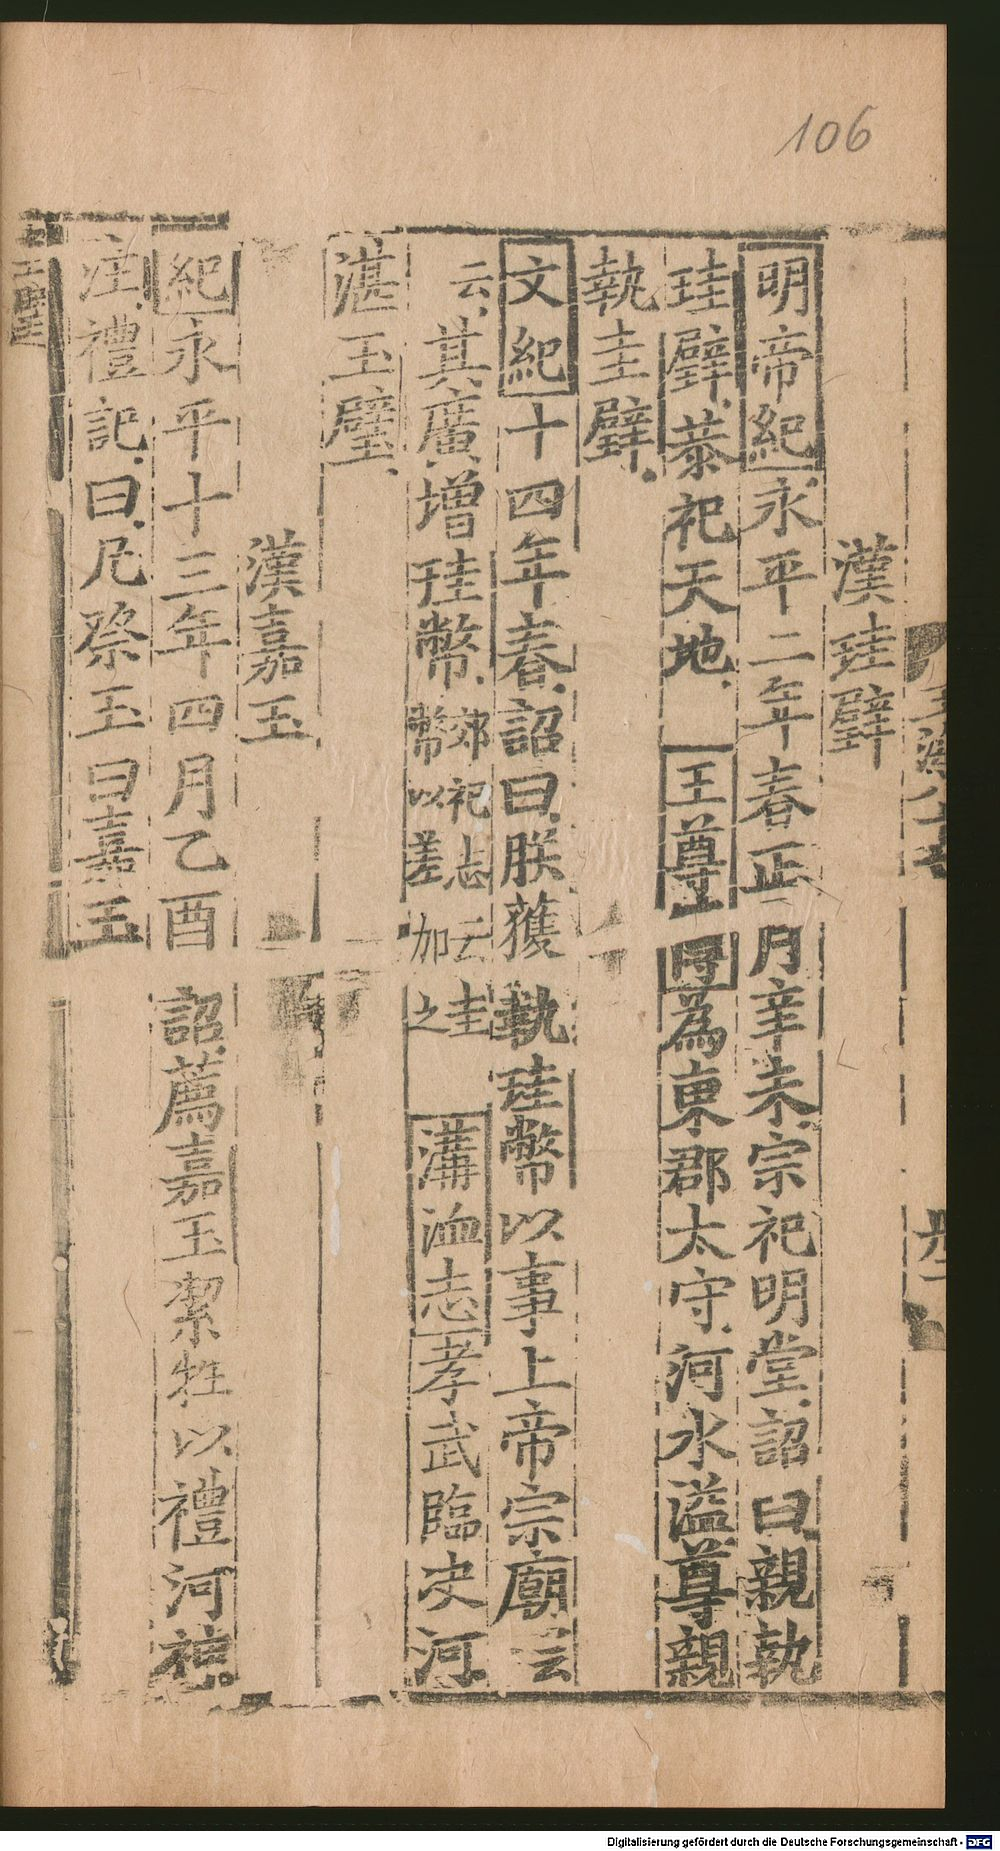 106
漢珪璧
明帝紀永平二年春正月辛未宗祀明堂詔曰親執
珪璧恭祀天地 王尊 爲東郡太守河水溢尊親
執圭璧
文紀十四年春詔曰朕獲執珪幣以事上帝宗廟云
云其廣增珪幣郊祀志云圭幣以差加之 溝洫志孝武臨决河
湛玉璧
漢嘉玉
紀永平十三年四月乙酉詔薦嘉玉潔牲以禮河神
注禮記曰凡祭玉曰嘉玉
Digitalisierung gefördert durch die Deutsche Forschungsgemeinschaft - DFG